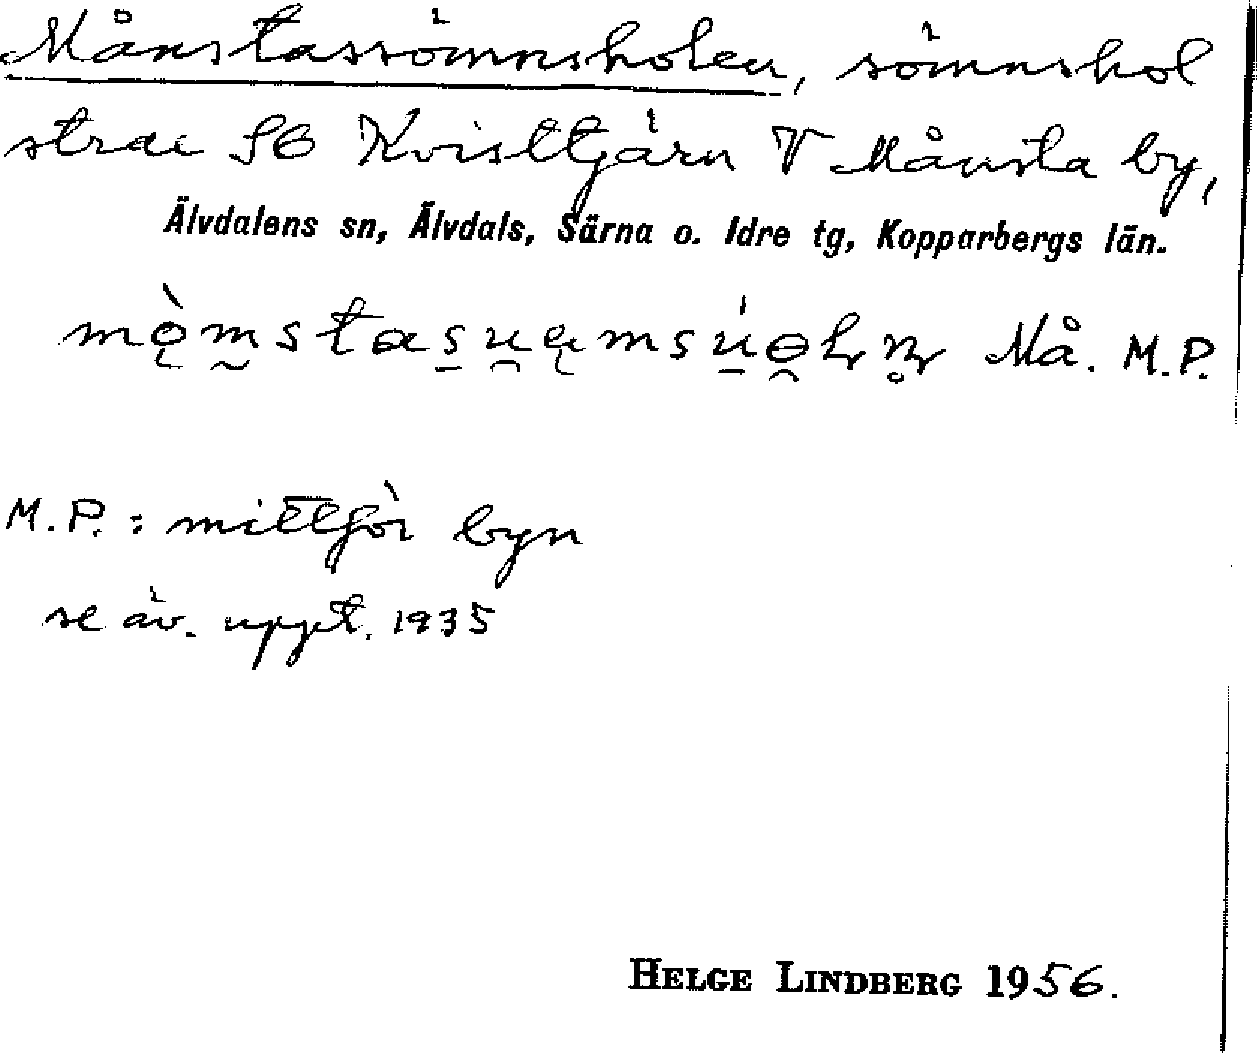 Månstassömnsholen, sömnshol
strax SO Kvisttjärn V Månsta by,
Älvdalens sn, Älvdals, Särna o. Idre tg, Kopparbergs län.
Må. M.P.
M.P.: mittför byn
se äv. uppt. 1935
HELGE LINDBERG 1956.